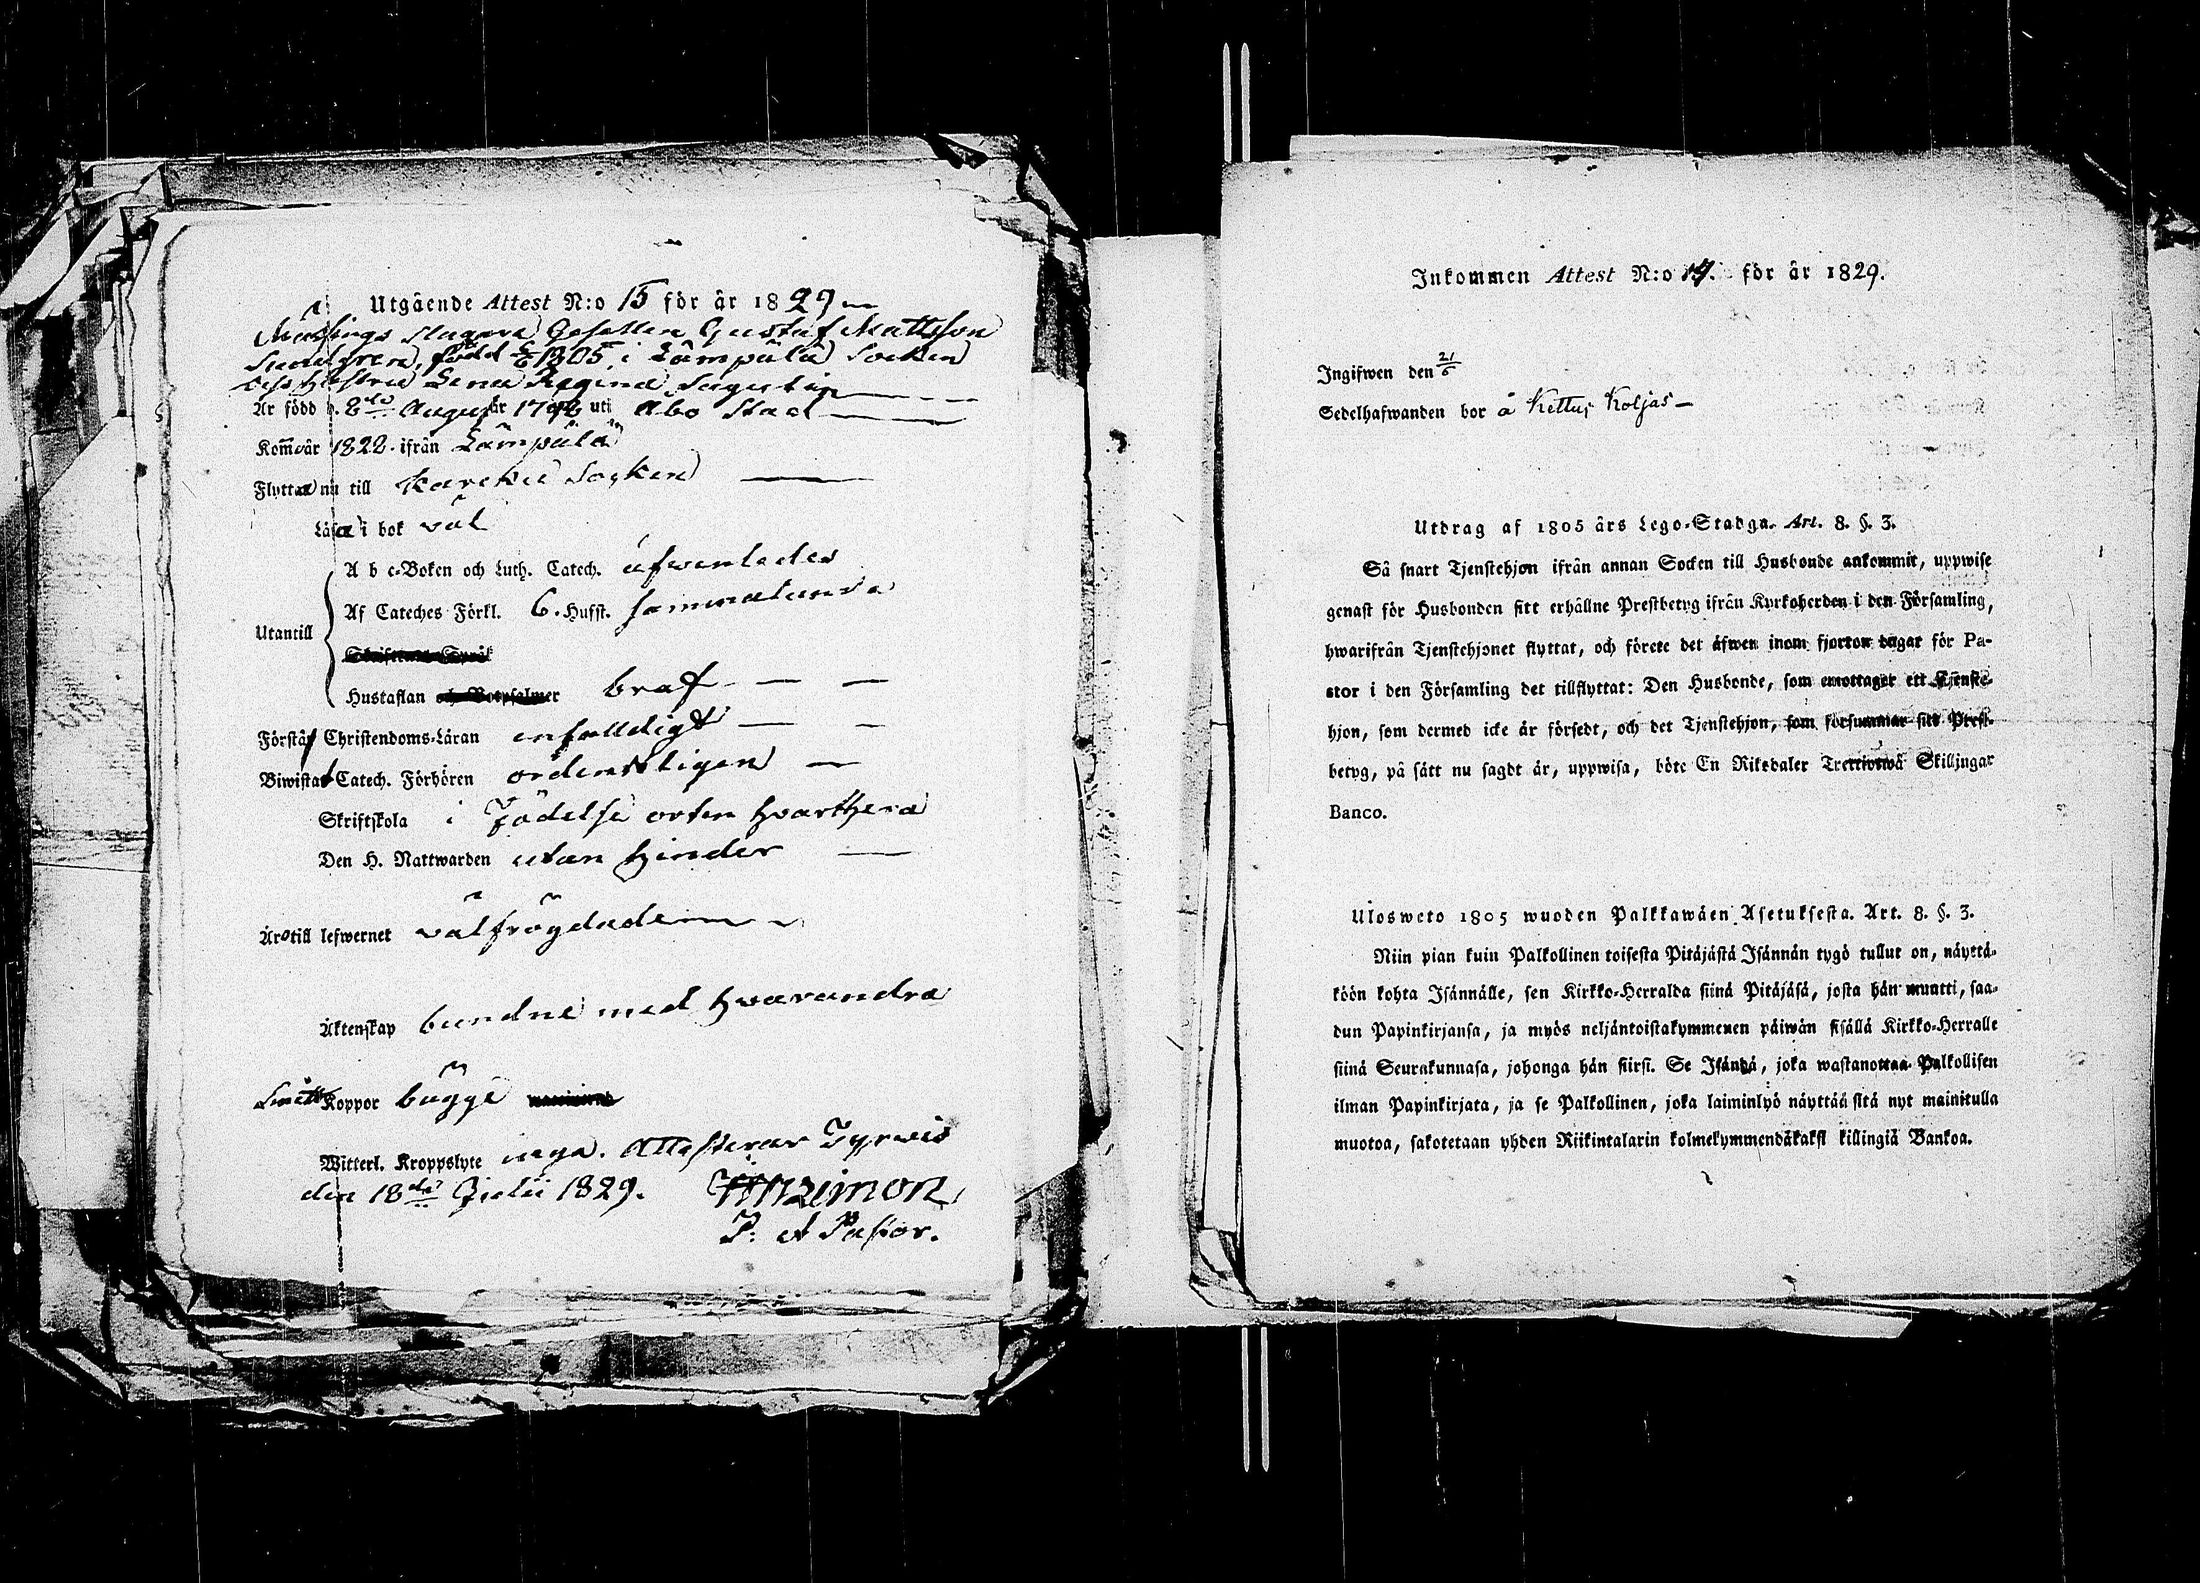 Utgående Attest N:o 15 för år 1829
Mässings slagare Gesellen Gustaf Mattsson
Sundgren, född 1805 i Lämpälä Socken
dess Hustru Lena Regina
Är född d. 8de August år 17 uti Åbo Stad
Kom̄o år 1822 ifrån Lämpälä
Flytta nu till Karckü Socken
Läsa i bok väl
A b c-Boken och Luth. Catech. äfwenledes
Af Cateches Förkl. 6. Hufst. sammalunda
Utantill
Hustaflan och Botpsalmer braf
Förstå Christendoms-Läran enfalldigt
Biwista Catech. Förhören ordenteligen
Skriftskola i Födelse orten hvarthera
Den H. Nattwarden utan hinder
Äro till lefwernet välfrögdade
Äktenskap bundne med hvarandra
Koppor bägge
Witterl. Kroppslyte inga. Attesterar Tyrwis
den 18de Julii 1829.
P. et Pastor.
Inkommen Attest N:o 17. för år 1829.
Ingifwen den 21/6
Sedelhafwanden bor å Kettus Koljas
Utdrag af 1805 års Lego-Stadga. Art. 8. §. 3.
Så snart Tjenstehjon ifrån annan Socken till Husbonde ankommit, uppwise
genast för Husbonden sitt erhållne Prestbetyg ifrån Kyrkoherden i den Församling,
hwarifrån Tjenstehjonet flyttat, och förete det äfwen inom fjorton dagar för Pa-
stor i den Församling det tillflyttat: Den Husbonde, som emottager ett Tjenste-
hjon, som dermed icke är försedt, och det Tjenstehjon, som försummar sitt Prest-
betyg, på sätt nu sagdt är, uppwisa, böte En Riksdaler Trettiotwå Skillingar
Banco.
Ulosweto 1805 wuoden Palkkawäen Asetuksesta. Art. 8. §. 3.
Niin pian kuin Palkollinen toisesta Pitäjästä Isännän tygö tullut on, näyttä-
köön kohta Isännälle, sen Kirkko-Herralda siinä Pitäjäsä, josta hän muutti, saa-
dun Papinkirjansa, ja myös neljäntoistakymmenen päiwän sisällä Kirkko-Herralle
siinä Seurakunnasa, johonga hän siirsi. Se Isändä, joka wastanottaa Palkollisen
ilman Papinkirjata, ja se Palkollinen, joka laiminlyö näyttää sitä nyt mainitulla
muotoa, sakotetaan yhden Riikintalarin kolmekymmendäkaksi killingiä Bankoa.